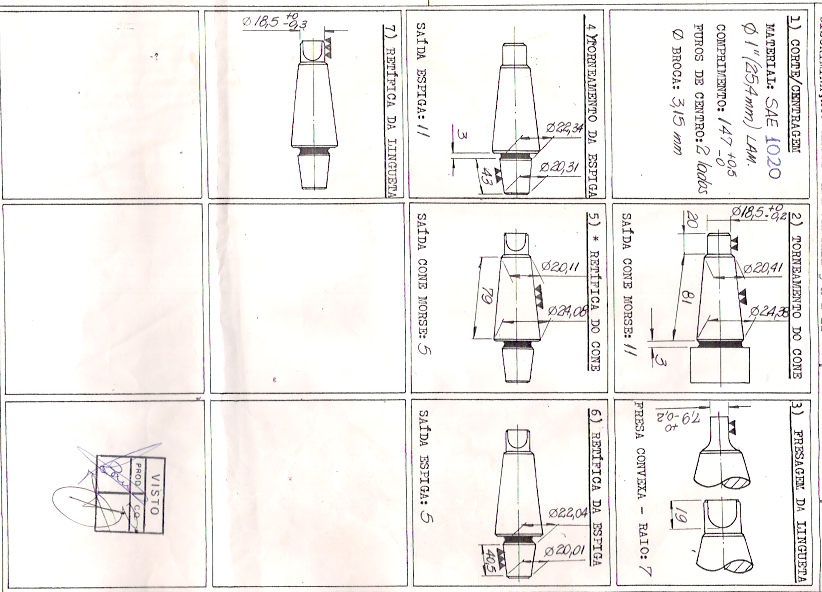 1) CORTE/CENTRAGEM
MATERIAL: SAE 1020
Ø 1" (25,4mm) LAM.
COMPRIMENTO: 147 +0,5 -0
FUROS DE CENTRO: 2 lados
Ø BROCA: 3,15 mm
2) TORNEAMENTO DO CONE
Ø18,5 +0 -0,2
Ø20,41
Ø24,38
20
81
3
SAÍDA CONE MORSE: 11
3) FRESAGEM DA LINGUETA
7,9 +0 -0,2
19
FRESA CONVEXA - RAIO: 7
4) TORNEAMENTO DA ESPIGA
Ø22,34
Ø20,31
3
43
SAÍDA ESPIGA: 11
5) * RETÍFICA DO CONE
Ø20,11
Ø24,08
79
SAÍDA CONE MORSE: 5
6) RETÍFICA DA ESPIGA
Ø22,04
Ø20,01
40,5
SAÍDA ESPIGA: 5
7) RETÍFICA DA LINGUETA
Ø 18,5 +0 -0,3
VISTO
PROD
CQ